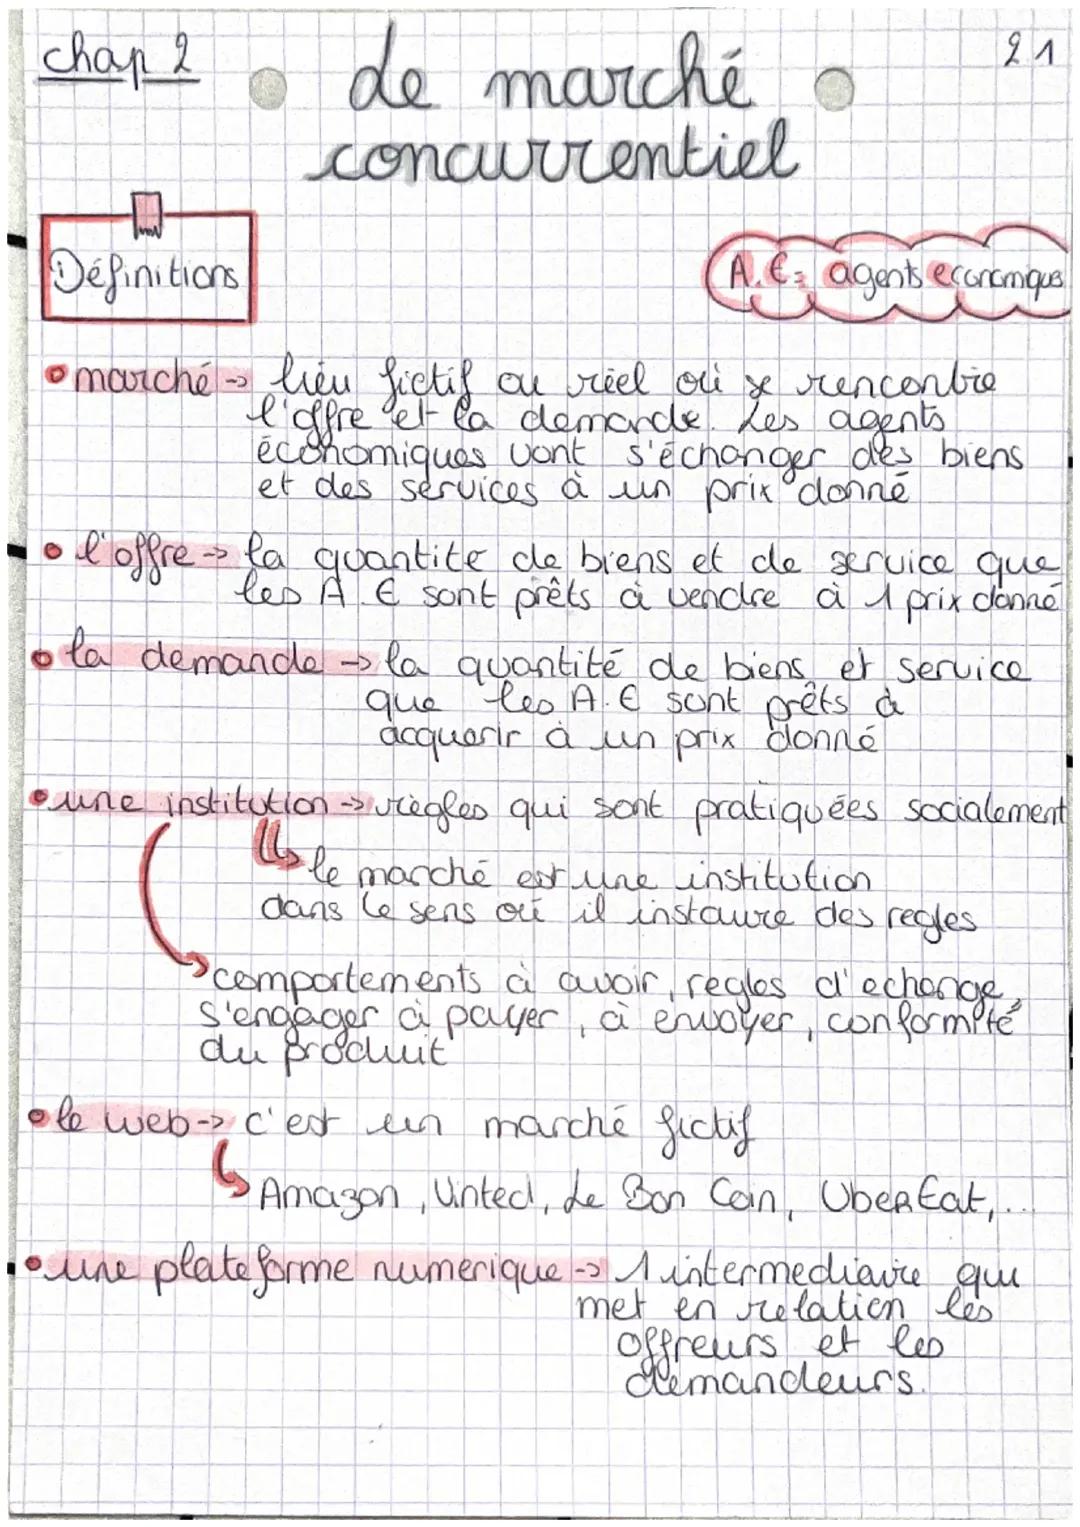 chap 2
2 1
de marché
concurrentiel
Définitions
A.E= agents economiques
marché -> lieu fictif ou réel où se rencontre
l'offre et la demande. Les agents
économiques vont s'échanger des biens
et des services à un prix donné
l'offre -> la quantité de biens et de service que
les A.E sont prêts à vendre à 1 prix donné
la demande -> la quantité de biens et service
que les A.E sont prêts à
acquerir à un prix donné
une institution -> règles qui sont pratiquées socialement
le marché est une institution
dans le sens où il instaure des regles
comportements à avoir, regles d'echange,
s'engager à payer, à envoyer, conformité
du produit
le web -> c'est un marché fictif
Amazon, Vinted, Le Bon Coin, UberEat,...
une plateforme numerique -> 1 intermediaire qui
met en relation les
offreurs et les
demandeurs.